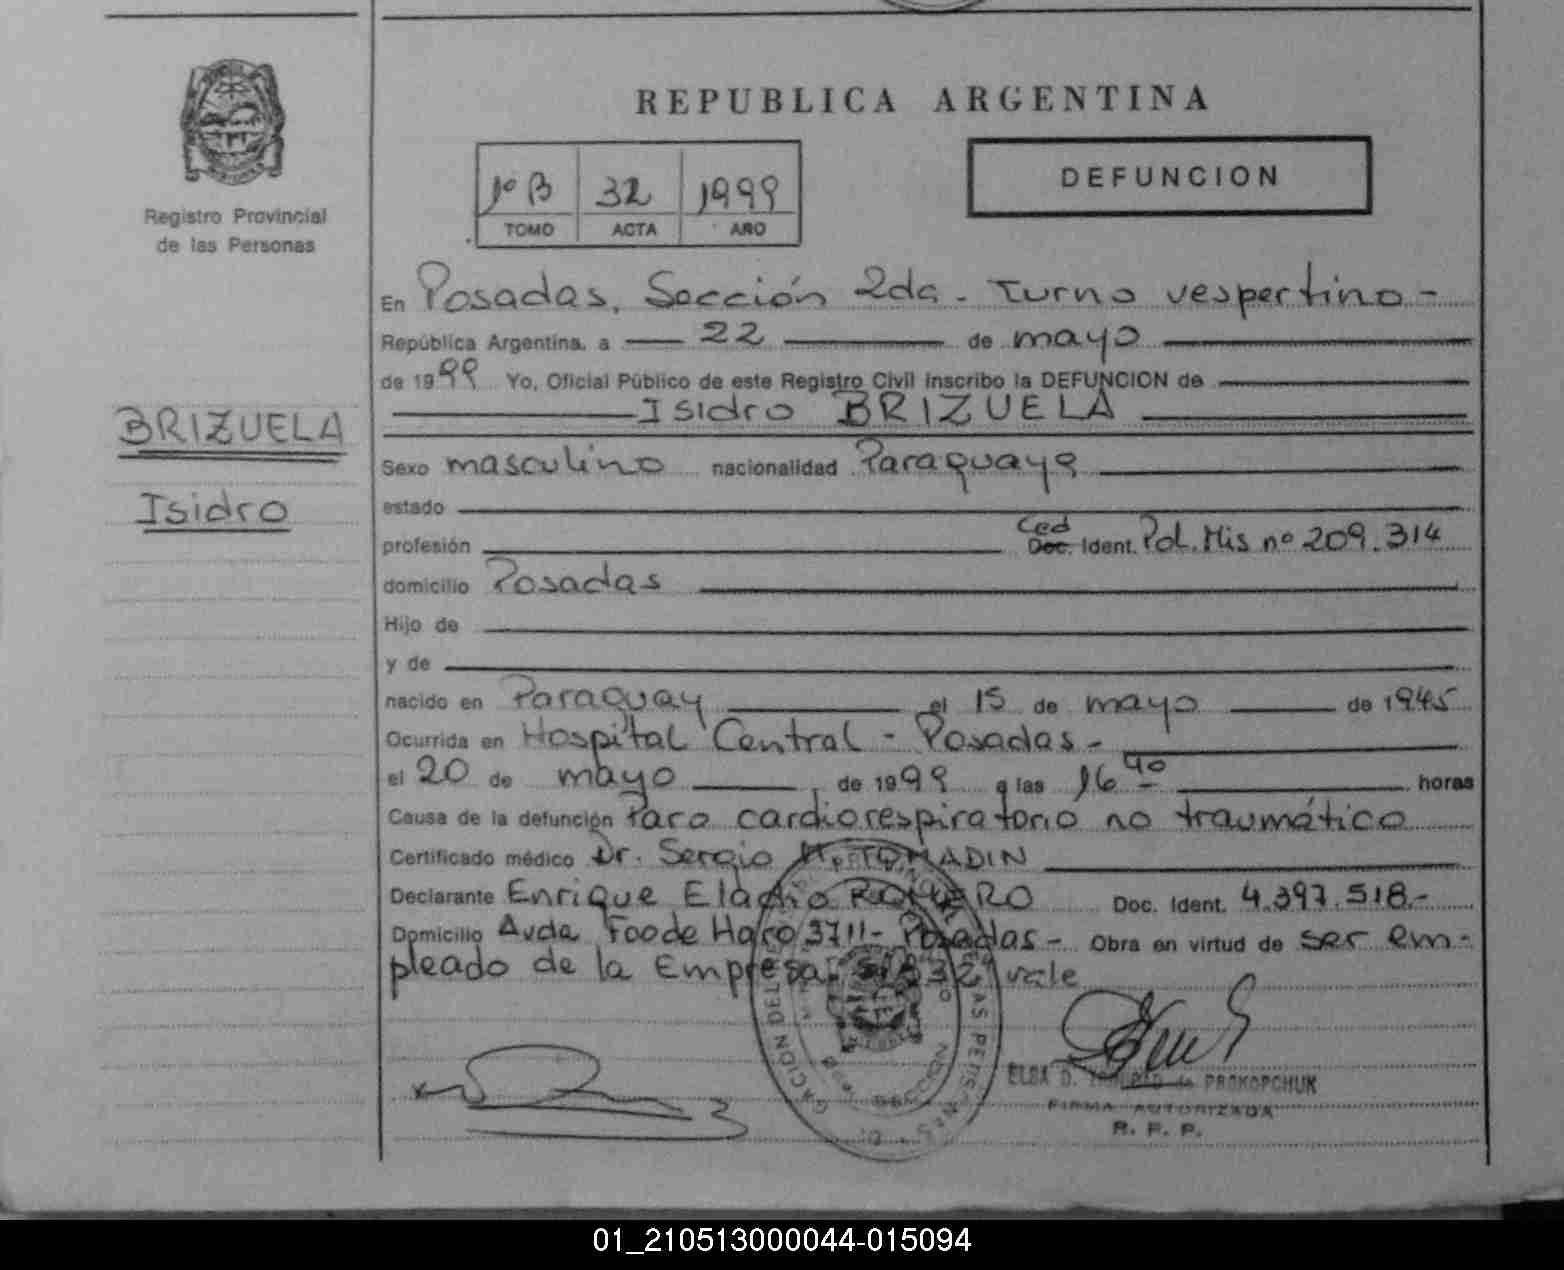 REPUBLICA ARGENTINA
Registro Provincial
de las Personas
1º B 32 1999
TOMO ACTA AÑO
DEFUNCION
En Posadas, Sección 2da - Turno vespertino -
República Argentina, a 22 de mayo
de 1999 Yo, Oficial Público de este Registro Civil inscribo la DEFUNCION de
Isidro BRIZUELA
BRIZUELA
Isidro
Sexo masculino nacionalidad Paraguaya
estado
profesión Ced Doc. Ident. Pol. Mis nº 209.314
domicilio Posadas
Hijo de
y de
nacido en Paraguay el 15 de mayo de 1945
Ocurrida en Hospital Central - Posadas -
el 20 de mayo de 1999 a las 16 40 horas
Causa de la defunción Paro cardiorespiratorio no traumático
Certificado médico Dr. Sergio
Declarante Enrique Eladio ROMERO Doc. Ident. 4.397.518.-
Domicilio Avda 3711 - Posadas - Obra en virtud de ser em-
pleado de la Empresa. vale
ELBA D. de PROKOPCHUK
FIRMA AUTORIZADA
R. P. P.
01_210513000044-015094